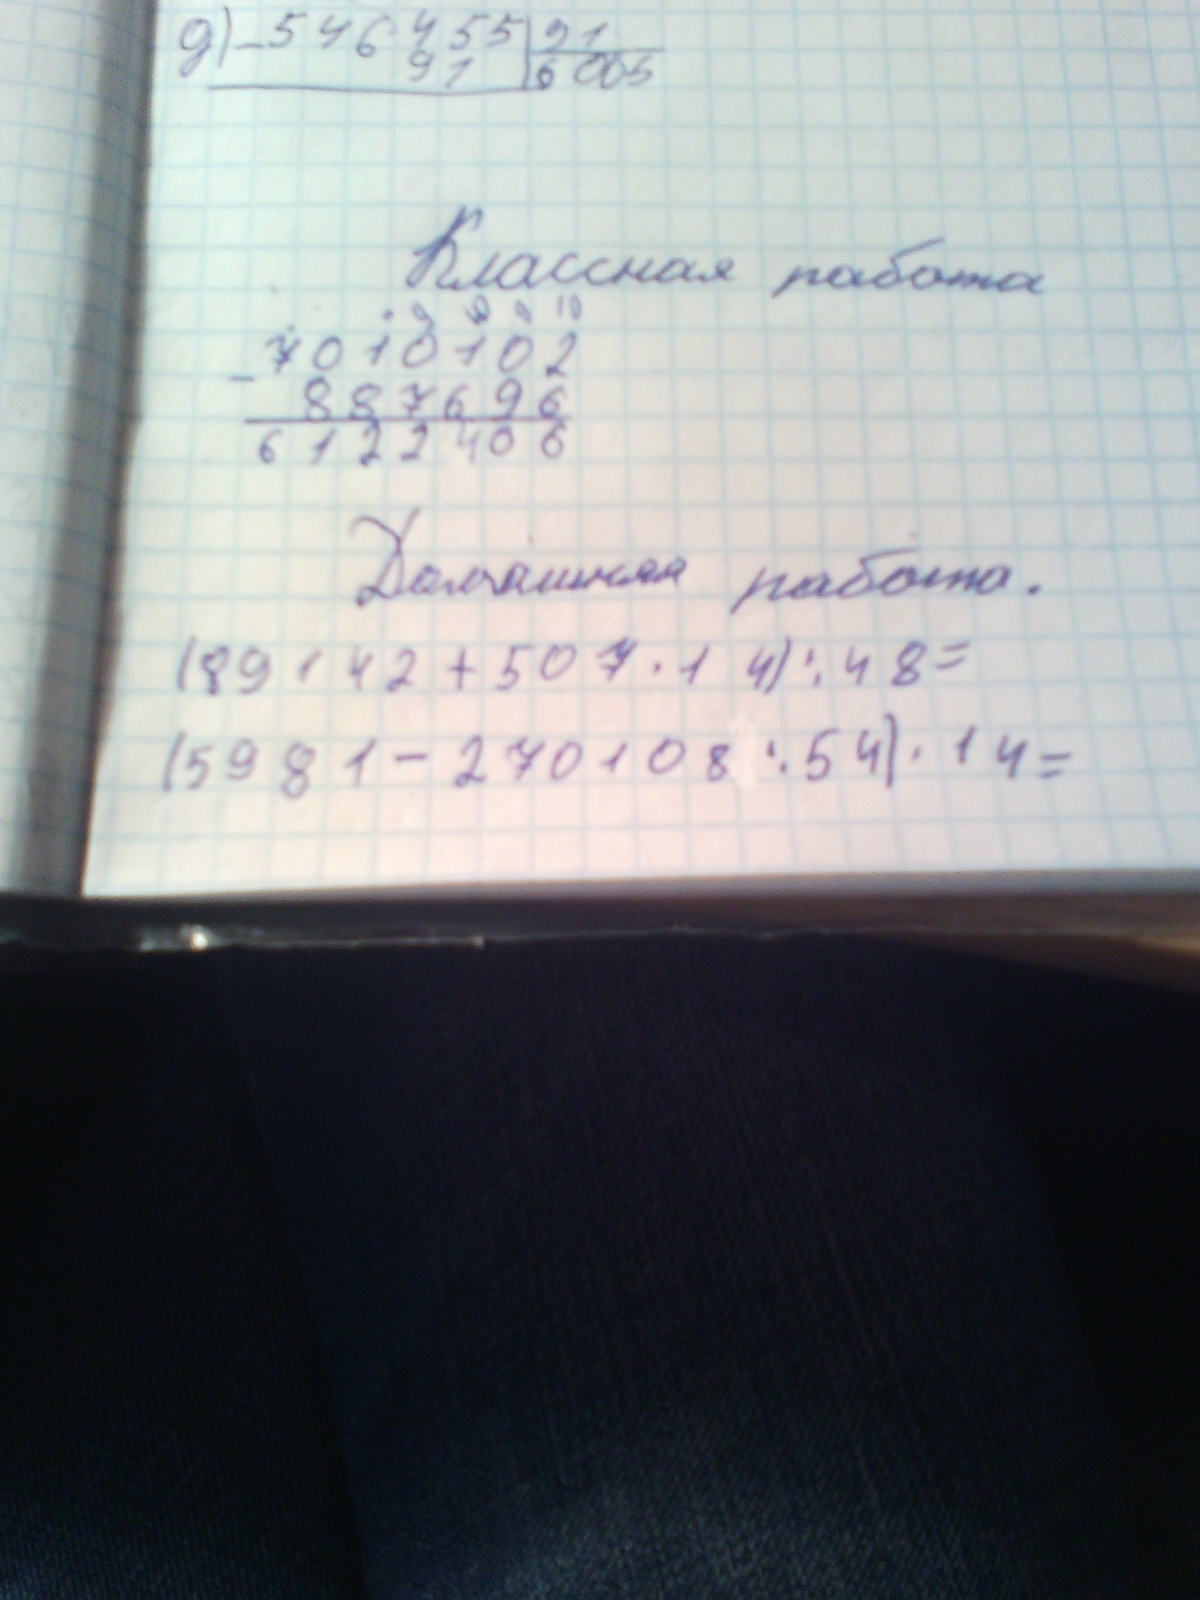 д) -546455|91
91 6005
Классная работа
9 9 10
7010102
-
887696
6122406
Домашняя работа.
(89142+507·14):48=
(5981-270108:54)·14=